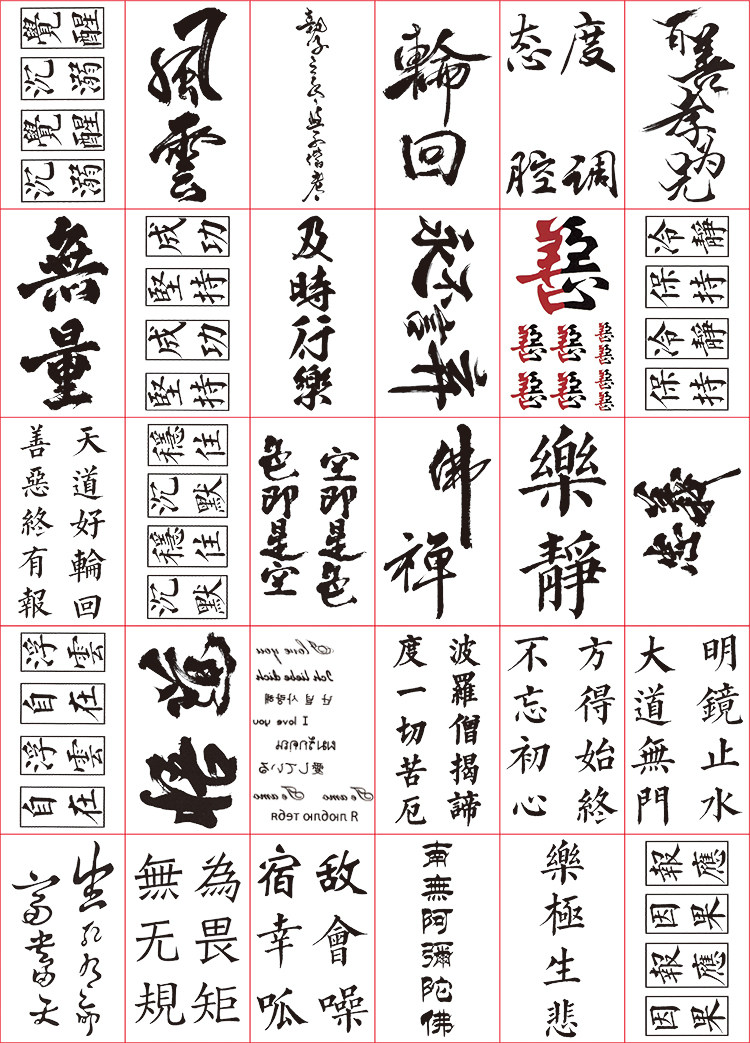 覺醒
沉溺
覺醒
沉溺
風雲
輪回
态度
腔调
百善孝为先
無量
成功
堅持
成功
堅持
及時行樂
永不言弃
冷靜
保持
冷靜
保持
天道好輪回
善惡終有報
穩住
沉默
穩住
沉默
空即是色
色即是空
佛禪
樂靜
浮雲
自在
浮雲
自在
I love you
Ich liebe dich
난 널 사랑해
I love you
愛している
Te amo Te amo
Я люблю тебя
波羅僧揭諦
度一切苦厄
方得始終
不忘初心
明鏡止水
大道無門
為畏矩
無无規
敌會噪
宿幸呱
南無阿彌陀佛
樂極生悲
報應
因果
報應
因果